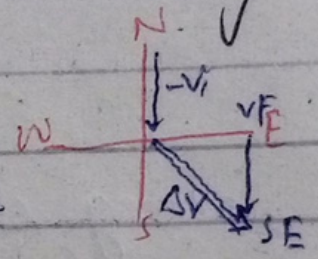 N
-Vi
W
VF
E
ΔV
S
SE